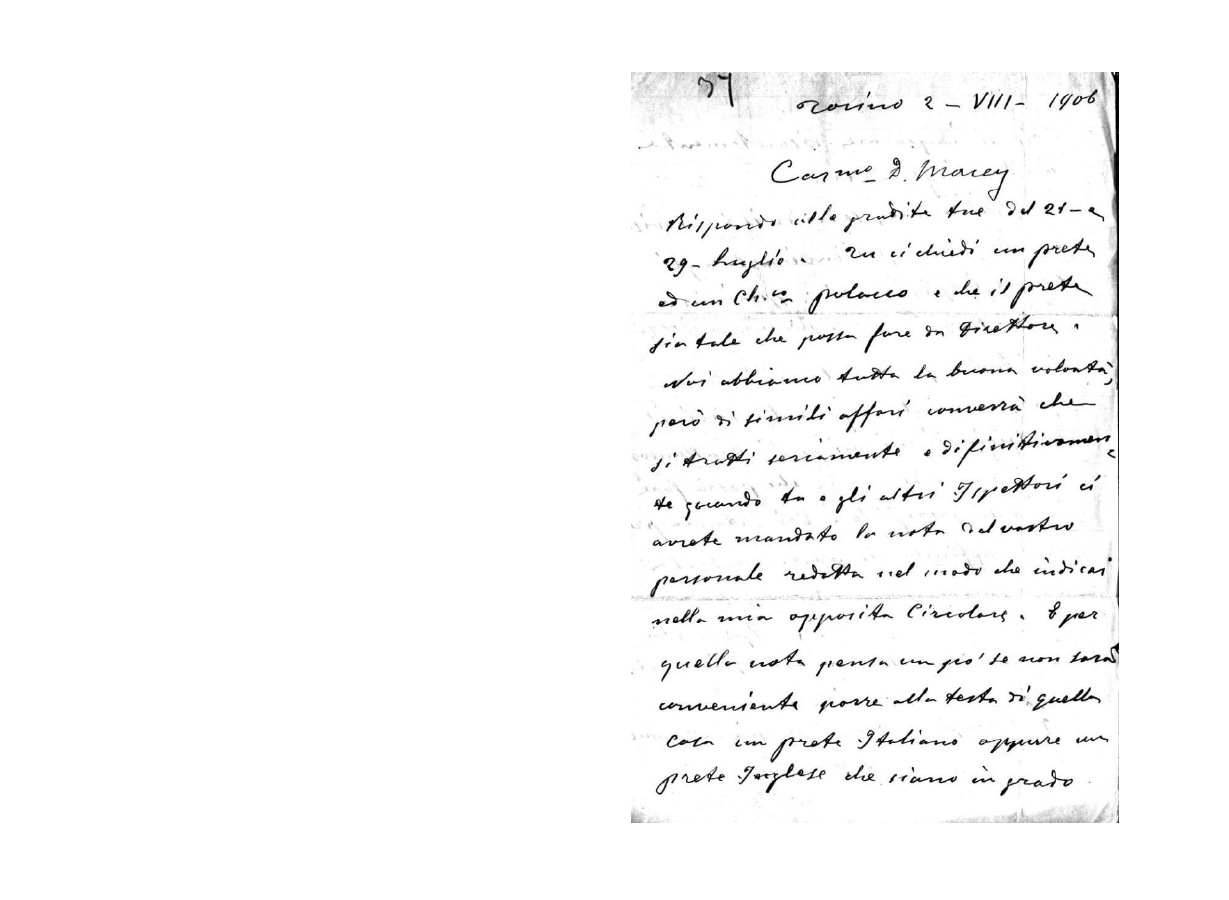 37
Torino 2 - VIII - 1906
Carmo D. Macey
Rispondo alla gradite tue del 21 - e
29 - Luglio. Tu ci chiedi un prete
ed un Ch.co polacco e che il prete
sia tale che possa fare da Direttore.
Noi abbiamo tutta la buona volontà,
però di simili affari converrà che
si tratti seriamente e difinitivamen-
te quando tu e gli altri Ispettori ci
avrete mandato la nota del vostro
personale redatta nel modo che indicai
nella mia apposita Circolare. E per
quella nota pensa un po' se non sarà
conveniente porre alla testa di quella
casa un prete Italiano oppure un
prete Inglese che siano in grado